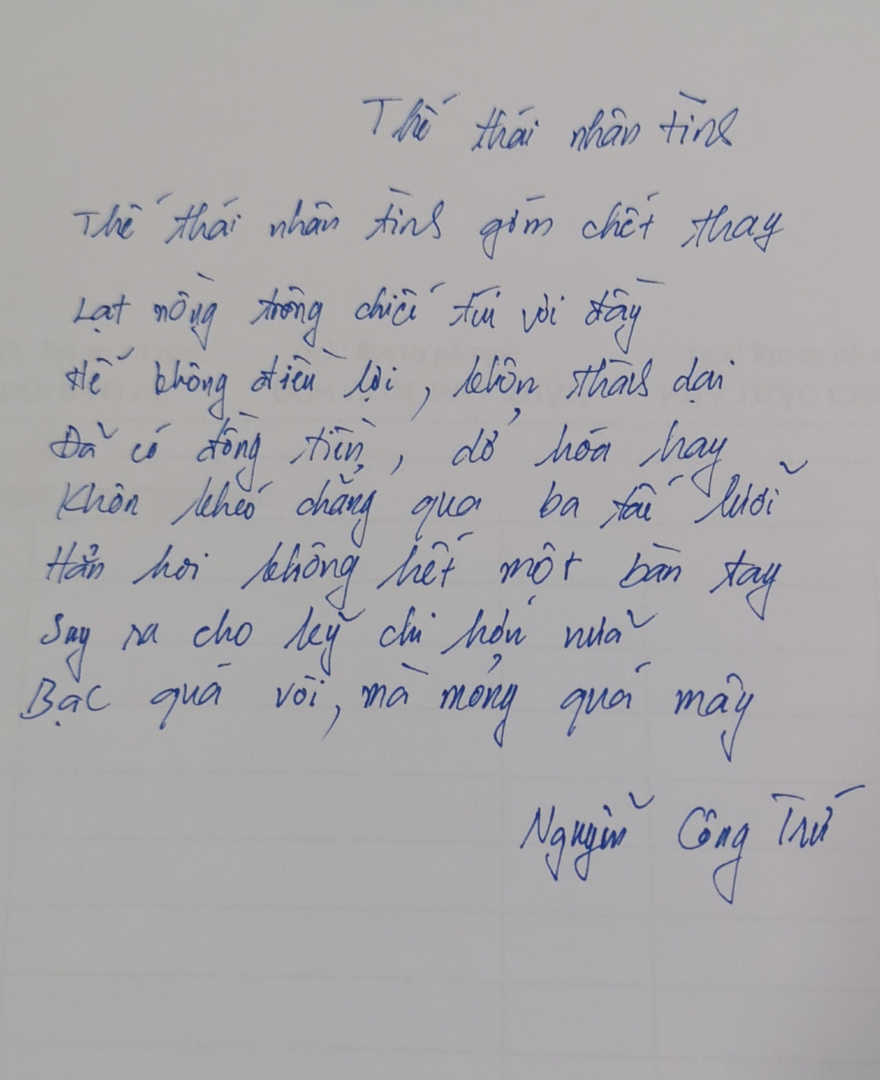 Thế thái nhân tình
Thế thái nhân tình gớm chết thay
Lạt nồng trông chiếc túi vơi đầy
Hễ không điều lợi, khôn thành dại
Đã có đồng tiền, dở hóa hay
Khôn khéo chẳng qua ba tấc lưỡi
Hẳn hoi không hết một bàn tay
Suy ra cho kỹ chi hơn nữa
Bạc quá vôi, mà mỏng quá mây
Nguyễn Công Trứ